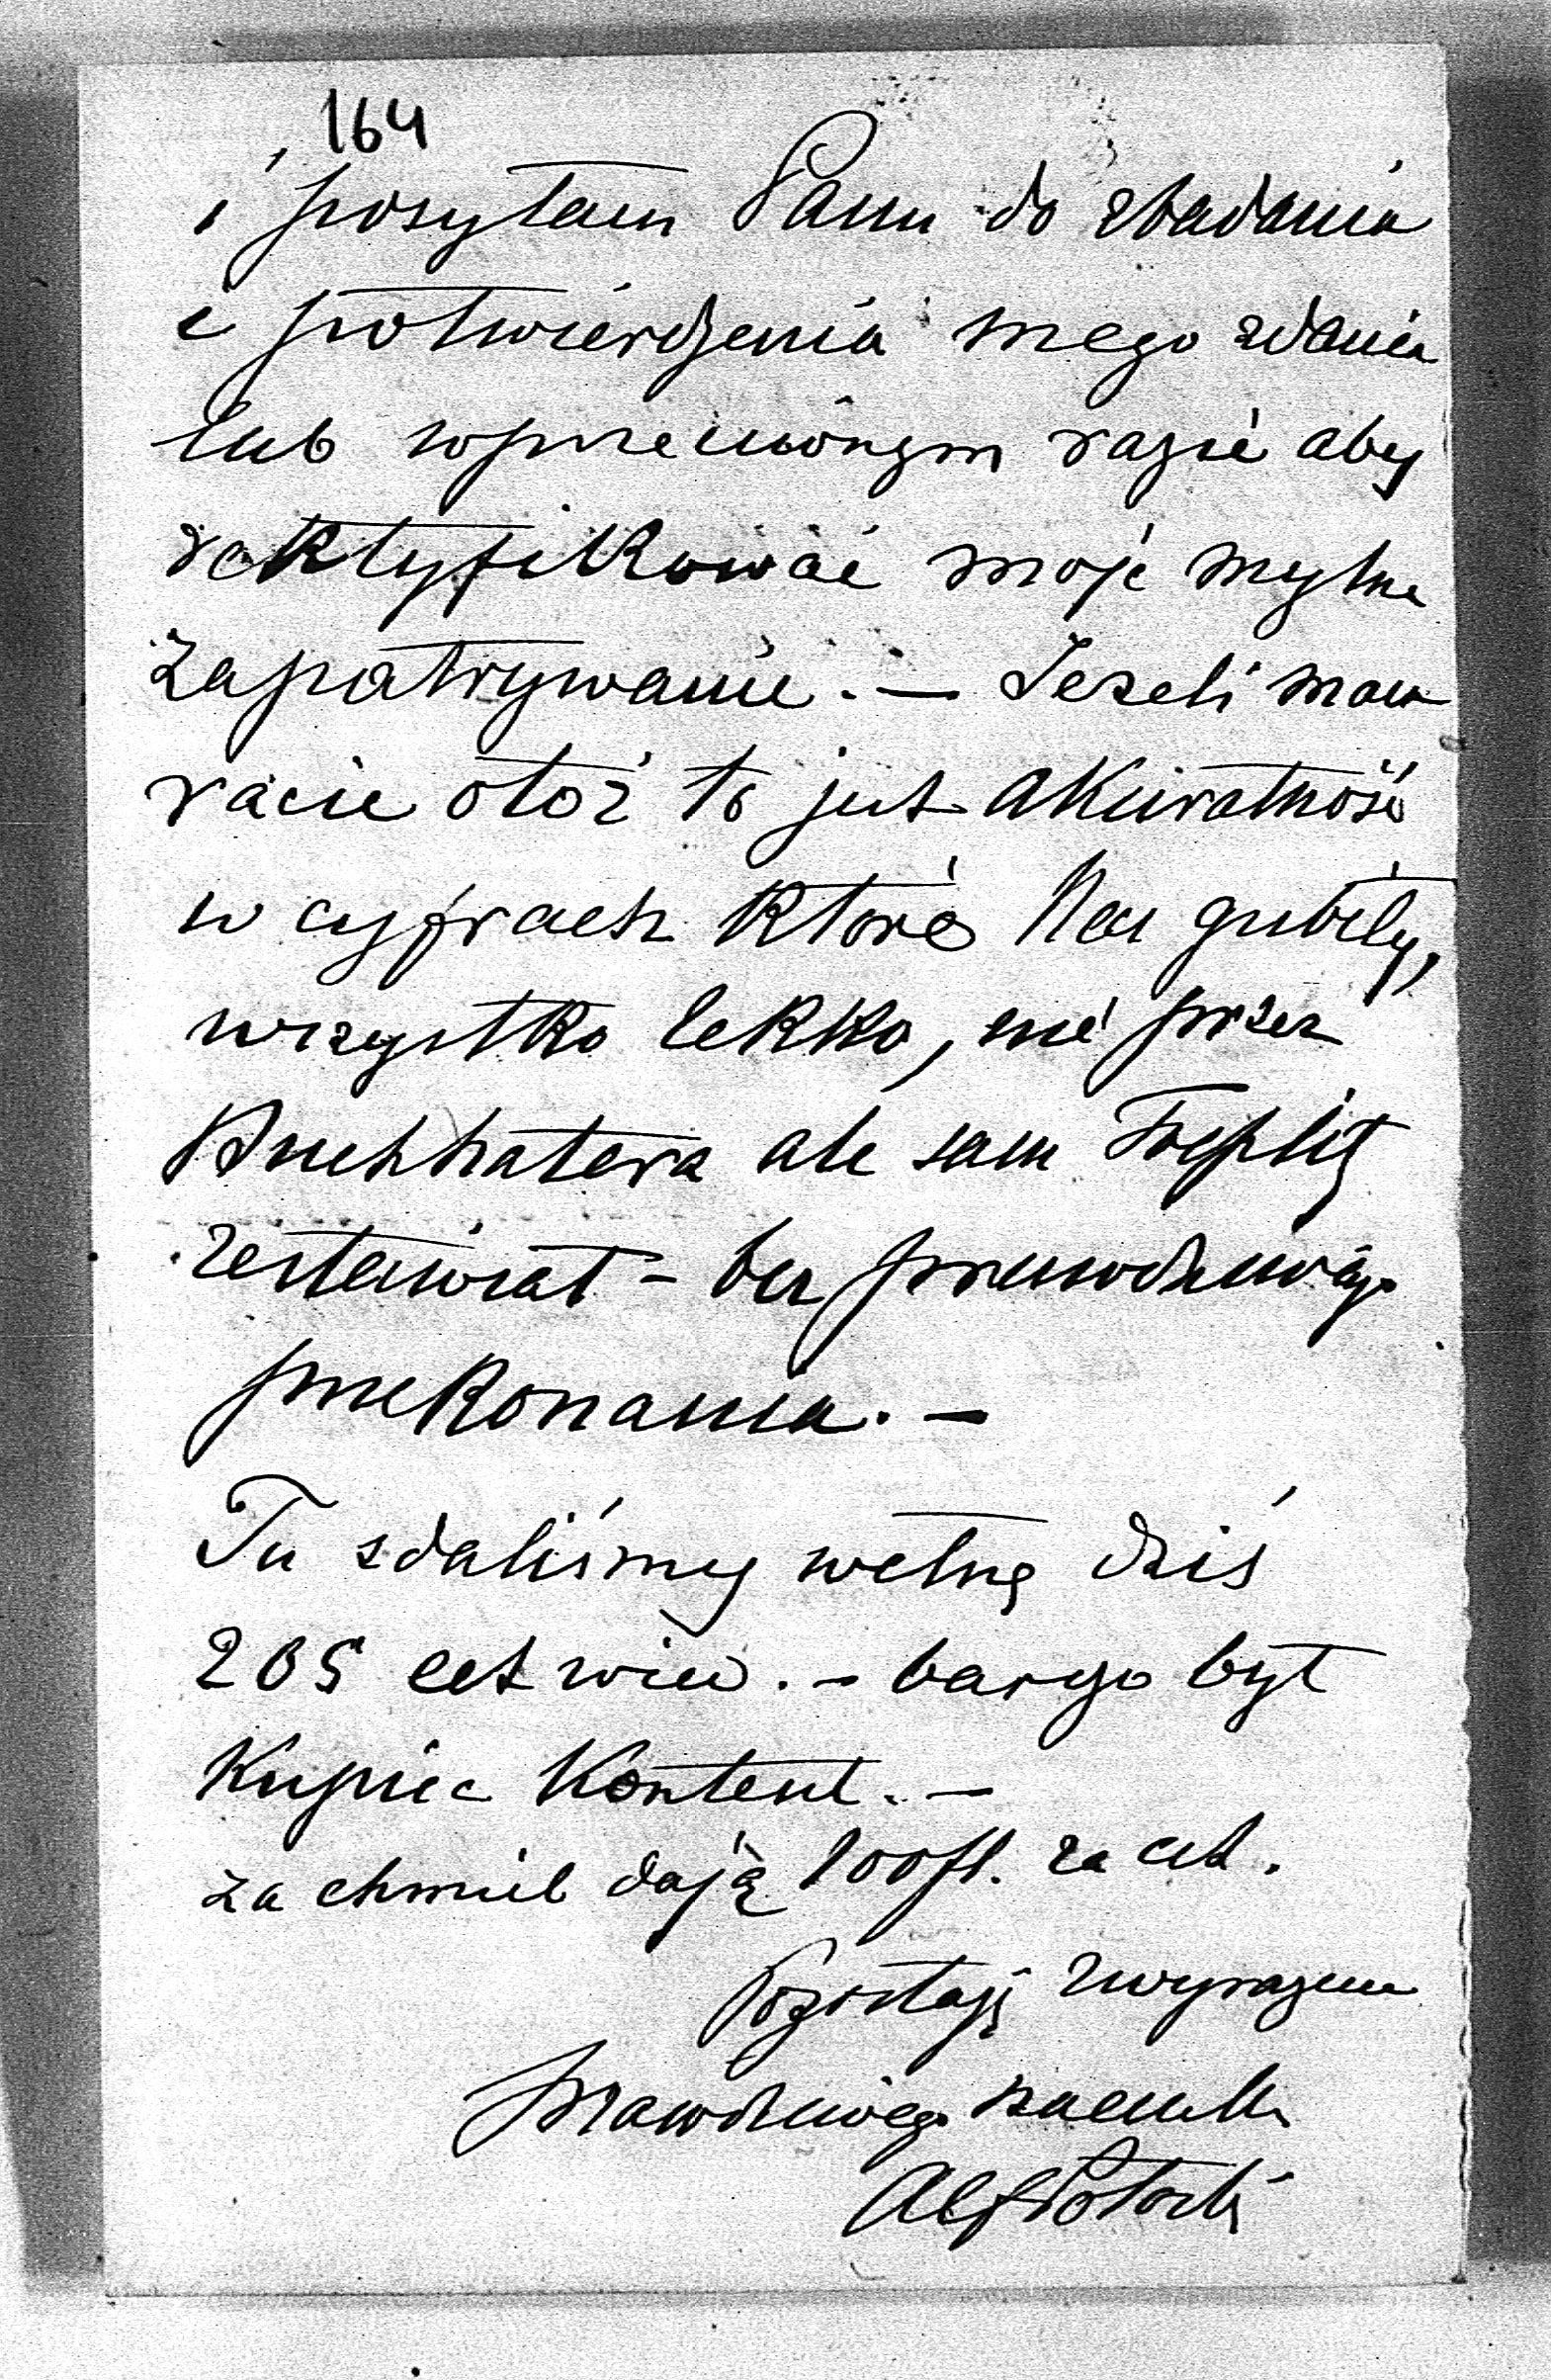 164
i posyłam Panu do zbadania
i potwierdzenia mego zdania
lub wprzeciwnym razie aby
rektyfikować moje mylne
Zapatrywanie. — Jeżeli mam
racie otóż to jest akuratność
w cyfrach które Nas gubiły,
wszystko lekko, nie przez
Buchhaltera ale sam Toeplitz
zestawiał - bez prawdziwego
przekonania. —
Tu zdaliśmy wełnę dziś
205 cet wied. - bargo był
Kupiec Kontent. —
za chmiel dają 100 fl. za cet.
Pozostaję zwyrazem
prawdziwego szacunku
Alf Potocki